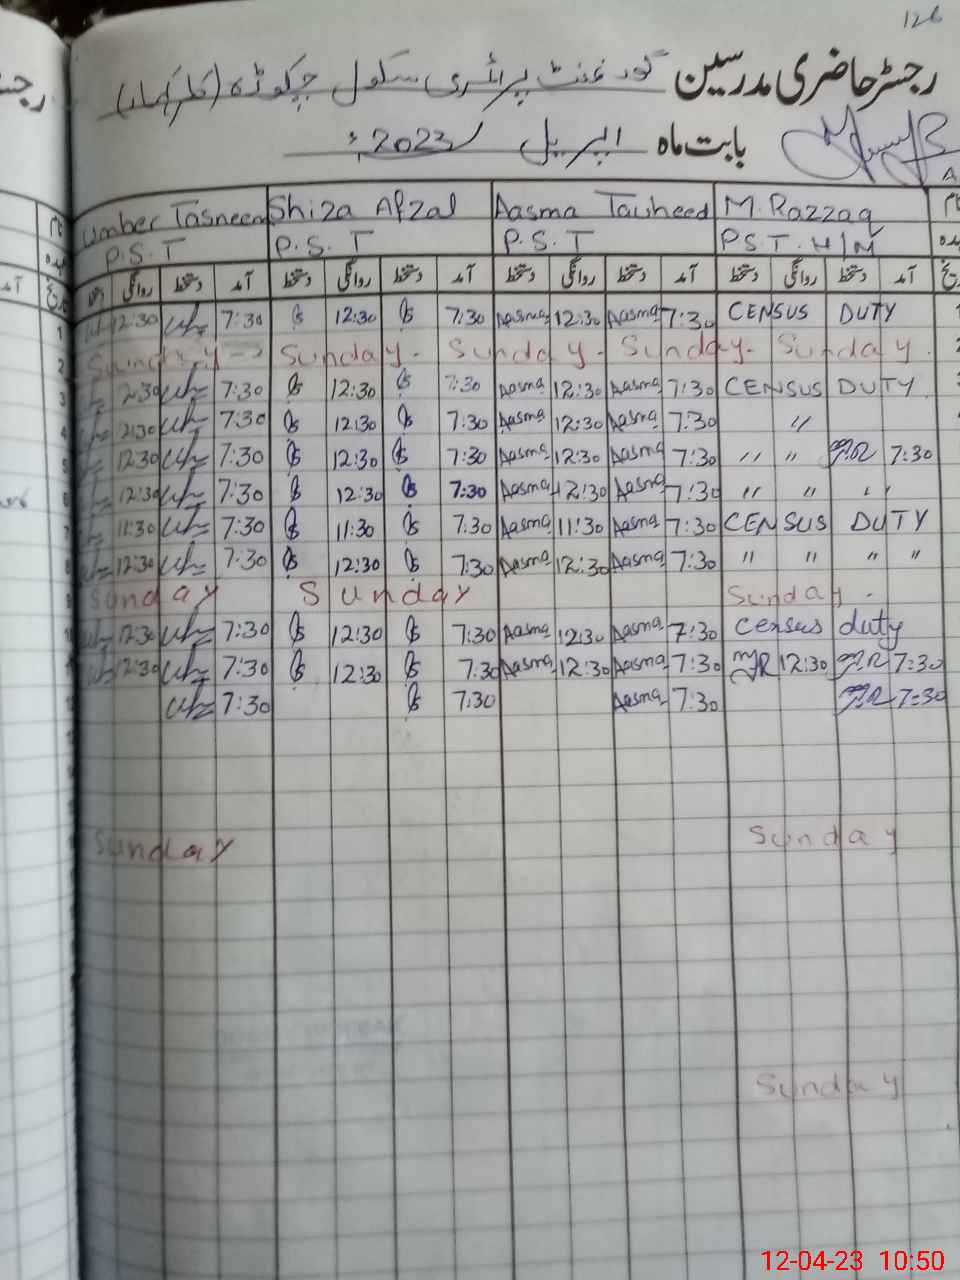 126
رجسٹر حاضری مدرسین گورنمنٹ پرائمری سکول چکوڈہ (کلرکہار)
بابت ماہ اپریل 2023ء
Umber Tasneem Shiza Afzal Aasma Tauheed M. Razzaq نام
P.S.T P.S.T P.S.T P.S.T H/M عہدہ
دستخط روانگی دستخط آمد دستخط روانگی دستخط آمد دستخط روانگی دستخط آمد دستخط روانگی دستخط آمد تاریخ
12:30 7:30 12:30 7:30 Aasma 12:30 Aasma 7:30 CENSUS DUTY 1
Sunday Sunday. Sunday. Sunday. Sunday. 2
12:30 7:30 12:30 7:30 Aasma 12:30 Aasma 7:30 CENSUS DUTY 3
12:30 7:30 12:30 7:30 Aasma 12:30 Aasma 7:30 " 4
12:30 7:30 12:30 7:30 Aasma 12:30 Aasma 7:30 " " MR 7:30 5
12:30 7:30 12:30 7:30 Aasma 12:30 Aasma 7:30 " " " 6
11:30 7:30 11:30 7:30 Aasma 11:30 Aasma 7:30 CENSUS DUTY 7
12:30 7:30 12:30 7:30 Aasma 12:30 Aasma 7:30 " " " " 8
Sunday Sunday Sunday. 9
12:30 7:30 12:30 7:30 Aasma 12:30 Aasma 7:30 Census duty 10
12:30 7:30 12:30 7:30 Aasma 12:30 Aasma 7:30 MR 12:30 MR 7:30
7:30 7:30 Aasma 7:30 MR 7:30
Sunday Sunday
Sunday
12-04-23 10:50